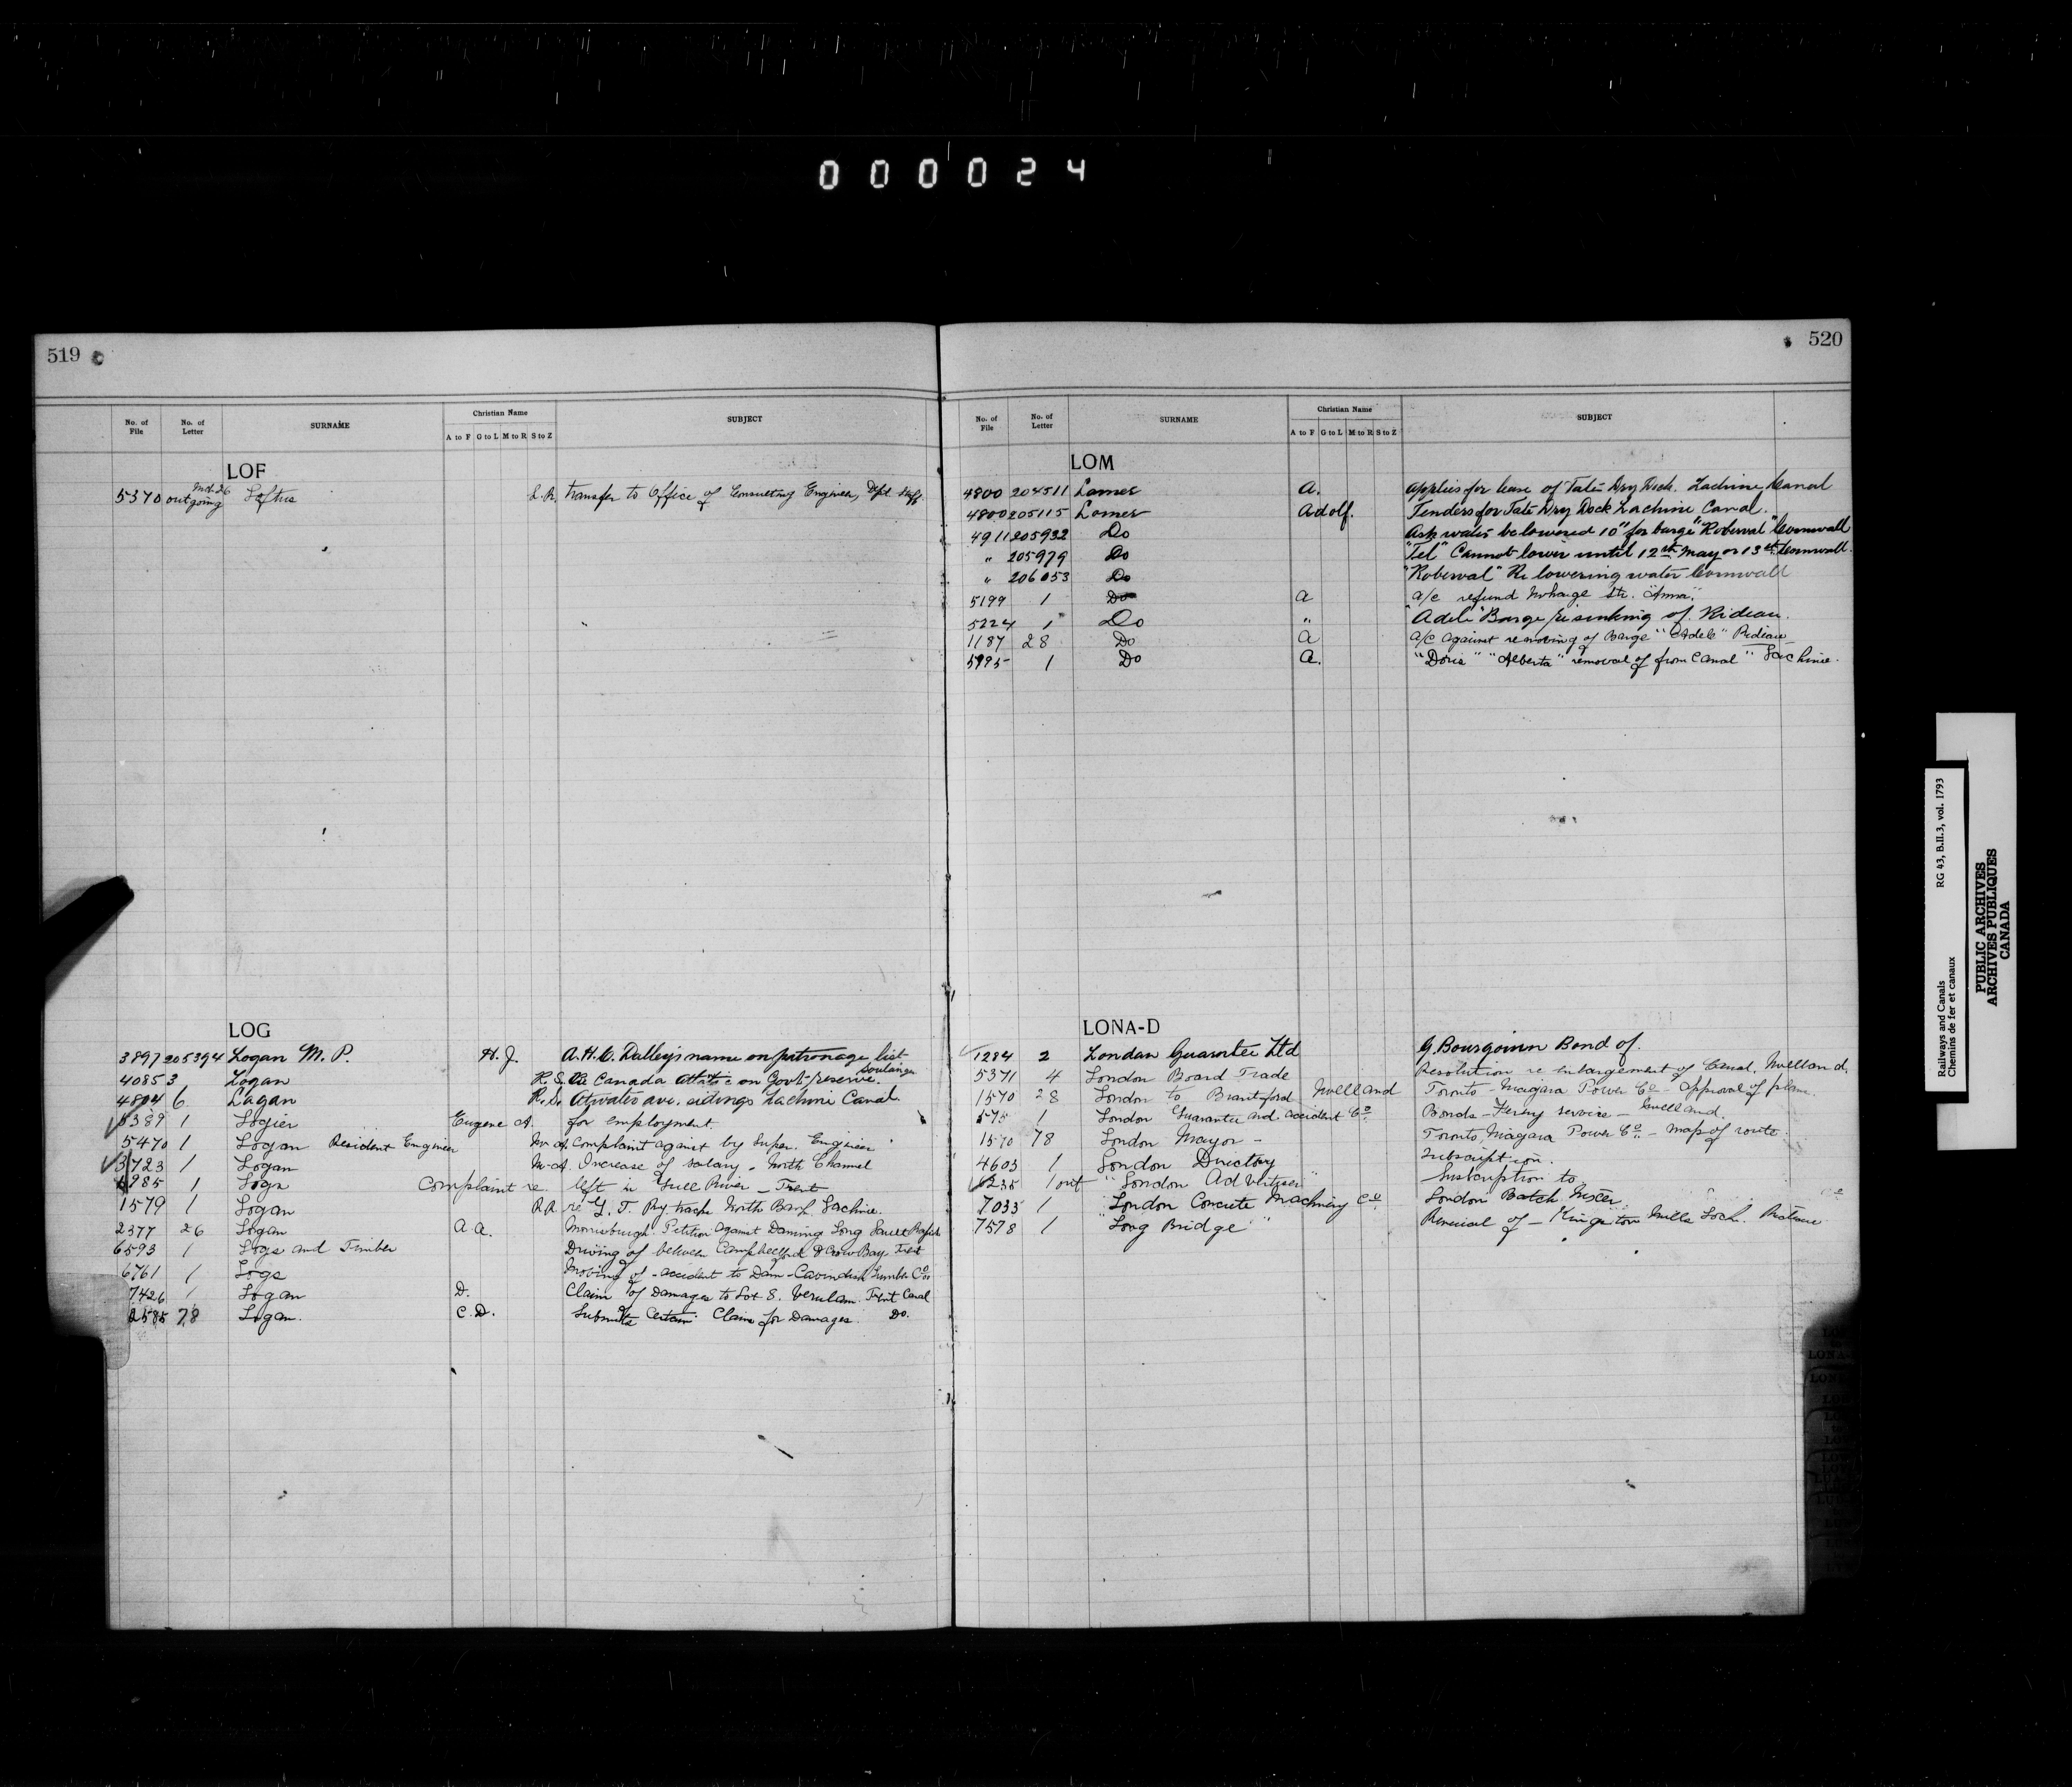 000024
519
No. of File No. of Letter SURNAME Christian Name A to F G to L M to R S to Z SUBJECT
LOF
5370 outgoing Mch 26 Loftus L.R. transfer to Office of Consulting Engineer, Dept. Staff.
LOG
3897 205394 Logan M. P. H. J. A. H. C. Dalley's name on patronage list
4085 3 Logan R. S. Canada Atlantic on Govt. reserve. Soulanges
4804 6 Logan R. S. Atwater ave. sidings Lachine Canal.
5389 1 Logier Eugene A. for employment.
5470 1 Logan Resident Engineer M. A. Complaint against by Super. Engineer
3723 1 Logan M. A. Increase of salary - North Channel
1985 1 Logs Complaint re left in Gull River - Trent
1579 1 Logan R.R. re G. T. Ry. track North Bank Lachine.
2377 26 Logan A A. Morrisburgh. Petition against Daming Long Sault Rapids
6593 1 Logs and Timber Driving of between Campbellford & Crow Bay Trent
6761 1 Logs Moving of - accident to Dam - Cavindish Lumber Co.
7426 1 Logan D. Claim of Damages to Lot 8. Verulam. Trent Canal
2585 78 Logan. C. D. Submits Certain Claim for Damages. Do.
520
No. of File No. of Letter SURNAME Christian Name A to F G to L M to R S to Z SUBJECT
LOM
4800 204511 Lomer A. Applies for lease of Tate Dry Dock. Lachine Canal
4800 205115 Lomer Adolf. Tenders for Tate Dry Dock Lachine Canal.
4911 205932 Do Ask water be lowered 10" for barge "Roberval" Cornwall
" 205979 Do "Tel" Cannot lower until 12th May or 13th Cornwall.
" 206053 Do "Roberval" Re lowering water Cornwall
5199 1 Do A a/c refund Str. "Anna".
5224 1 Do " "Adele" Barge re sinking of. Rideau.
1187 28 Do A a/c against removing of Barge "Adele" Rideau
5995 1 Do A. "Doris" "Alberta" removal of from Canal " Lachine.
LONA-D
1284 2 London Guarantee Ltd G. Bourgouin Bond of.
5371 4 London Board Trade Resolution re enlargement of Canal. Welland.
1570 28 London to Brantford Welland Toronto - Niagara Power Co - approval of plan.
575 1 London Guarantee and accident Co. Bonds - Ferry service - Welland.
1570 78 London Mayor - Toronto Niagara Power Co. - Map of route.
4603 1 London Directory Subscription.
6235 1 out " London Advertiser " Subscription to
7033 1 London Concrete Machinery Co. London Batch Mixer.
7578 1 Long Bridge " Renewal of - Kingston Mills Lock. Rideau
Railways and Canals RG 43, B.II.3, vol. 1793
Chemins de fer et canaux
PUBLIC ARCHIVES
ARCHIVES PUBLIQUES
CANADA